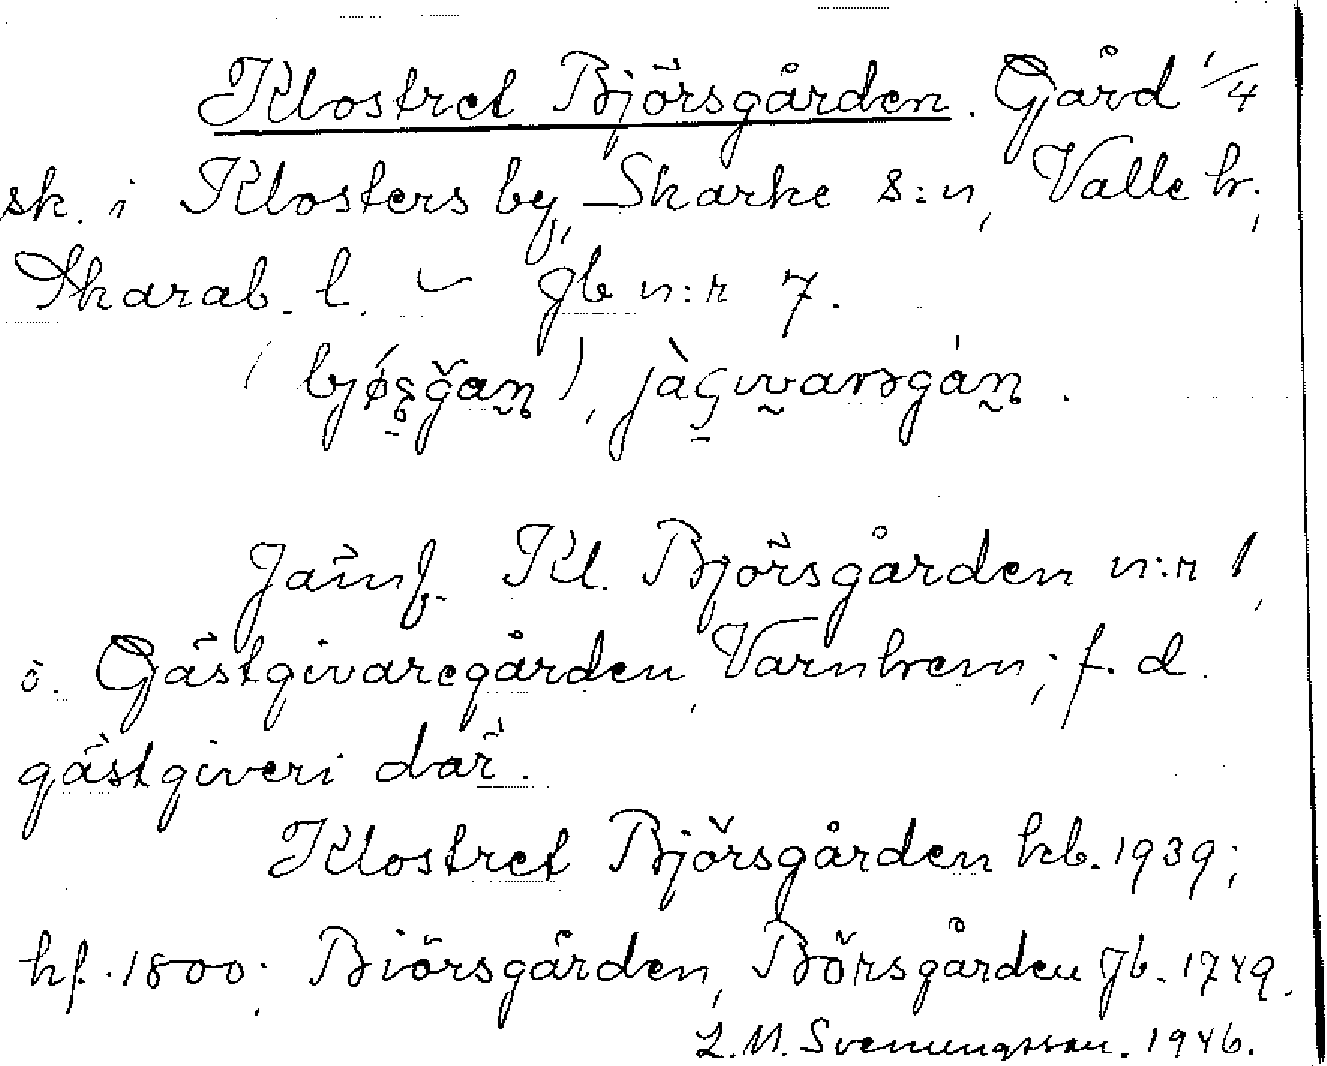 Klostret Björsgården. Gård 1/4
sk. i Klosters by, Skarke s:n, Valle hr,
Skarab. l. – Jb n:r 7.
Jämf. Kl. Björsgården n:r 1,
ö. Gästgivaregården, Varnhem; f. d.
gästgiveri där.
Klostret Björsgården kb. 1939;
hf. 1800; Biörsgården, Börsgården Jb. 1749.
L.M. Svenungsson. 1946.